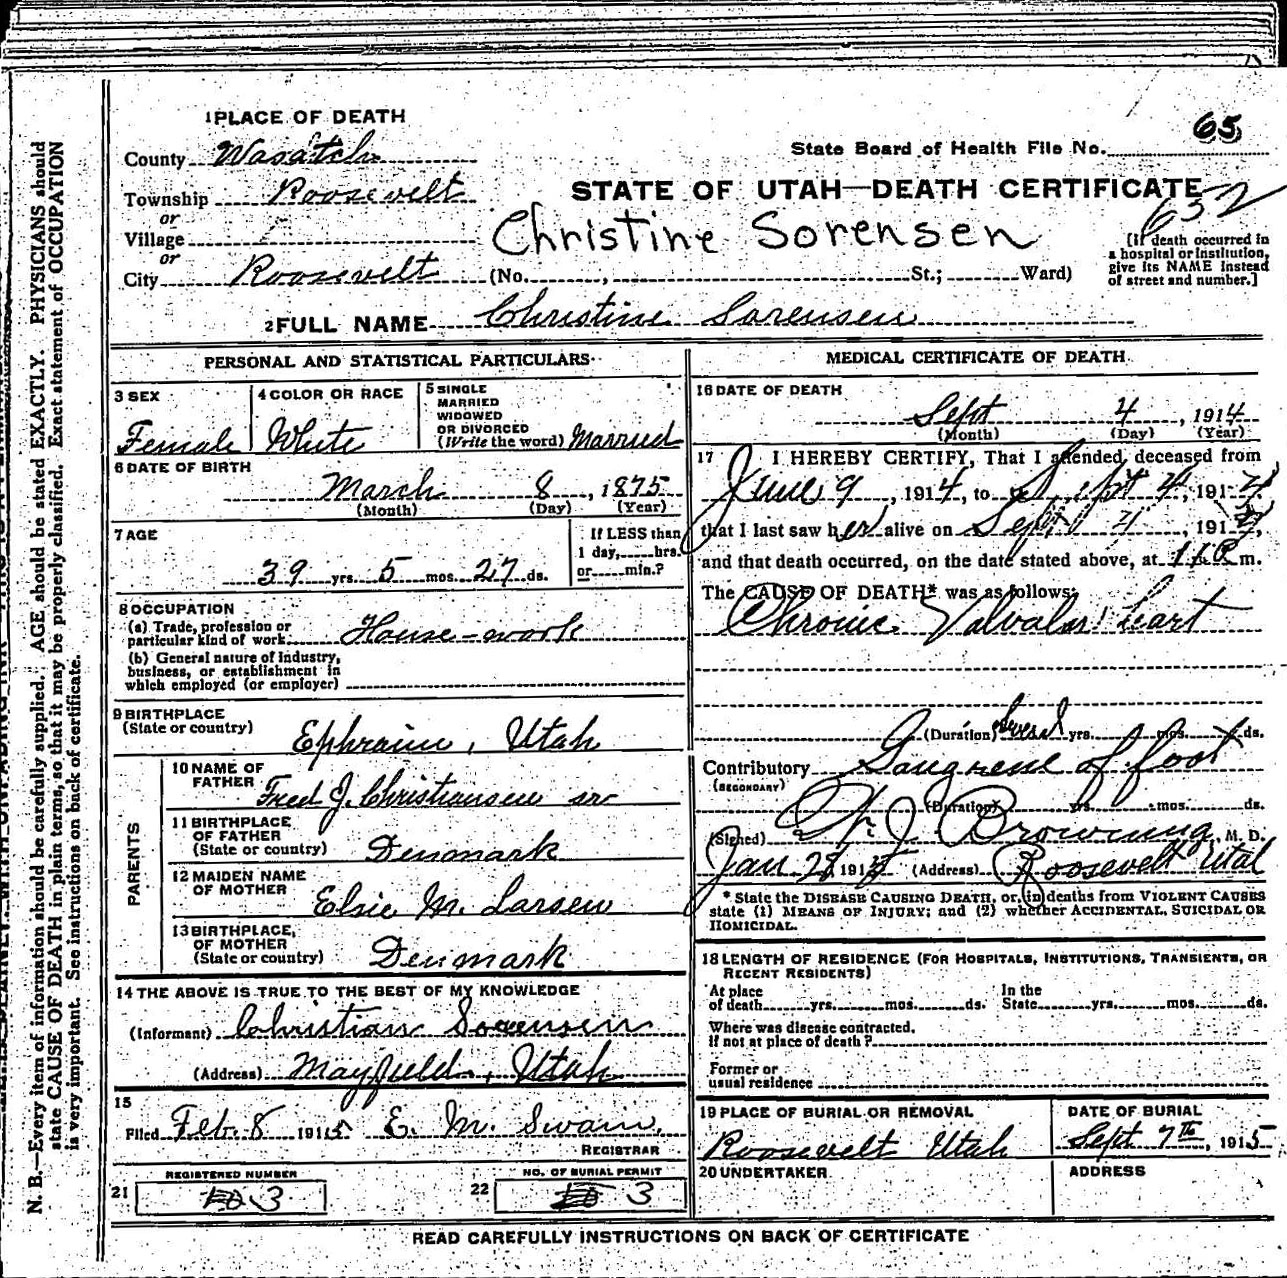 1 PLACE OF DEATH
County Wasatch
Township Roosevelt
or
Village
or
City Roosevelt (No. , St.; Ward)
State Board of Health File No. 65
STATE OF UTAH—DEATH CERTIFICATE
632
Christine Sorensen
[If death occurred in
a hospital or institution,
give its NAME instead
of street and number.]
2 FULL NAME Christine Sorensen
PERSONAL AND STATISTICAL PARTICULARS
3 SEX
Female
4 COLOR OR RACE
White
5 SINGLE
MARRIED
WIDOWED
OR DIVORCED
(Write the word) Married
6 DATE OF BIRTH
March 8, 1875
(Month) (Day) (Year)
7 AGE
39 yrs. 5 mos. 27 ds.
If LESS than
1 day, hrs.
or min.?
8 OCCUPATION
(a) Trade, profession or
particular kind of work House-work
(b) General nature of industry,
business, or establishment in
which employed (or employer)
9 BIRTHPLACE
(State or country) Ephraim, Utah
PARENTS
10 NAME OF
FATHER Fred J. Christiansen sr
11 BIRTHPLACE
OF FATHER
(State or country) Denmark
12 MAIDEN NAME
OF MOTHER Elsie M. Larsen
13 BIRTHPLACE
OF MOTHER
(State or country) Denmark
14 THE ABOVE IS TRUE TO THE BEST OF MY KNOWLEDGE
(Informant) Christian Sorensen
(Address) Mayfield, Utah
15
Filed Feb. 8 1915 E. M. Swain.
REGISTRAR
21 REGISTERED NUMBER
3
22 NO. OF BURIAL PERMIT
3
MEDICAL CERTIFICATE OF DEATH
16 DATE OF DEATH
Sept 4, 1914
(Month) (Day) (Year)
17 I HEREBY CERTIFY, That I attended deceased from
June 9, 1914, to Sept 4, 191
that I last saw her alive on Sept 4, 191
and that death occurred, on the date stated above, at 11 P m.
The CAUSE OF DEATH* was as follows:
Chronic Valvalar heart
(Duration) several yrs. mos. ds.
Contributory Gangrene of foot
(SECONDARY)
(Duration) yrs. mos. ds.
(Signed) J Browning, M. D.
Jan 28 1915 (Address) Roosevelt Utah
* State the DISEASE CAUSING DEATH, or, in deaths from VIOLENT CAUSES
state (1) MEANS OF INJURY; and (2) whether ACCIDENTAL, SUICIDAL OR
HOMICIDAL.
18 LENGTH OF RESIDENCE (FOR HOSPITALS, INSTITUTIONS, TRANSIENTS, OR
RECENT RESIDENTS)
At place
of death yrs. mos. ds.
In the
State yrs. mos. ds.
Where was disease contracted,
if not at place of death?
Former or
usual residence
19 PLACE OF BURIAL OR REMOVAL
Roosevelt Utah
DATE OF BURIAL
Sept 7th, 1915
20 UNDERTAKER
ADDRESS
READ CAREFULLY INSTRUCTIONS ON BACK OF CERTIFICATE
N. B.—Every item of information should be carefully supplied. AGE should be stated EXACTLY. PHYSICIANS should
state CAUSE OF DEATH in plain terms, so that it may be properly classified. Exact statement of OCCUPATION
is very important. See instructions on back of certificate.